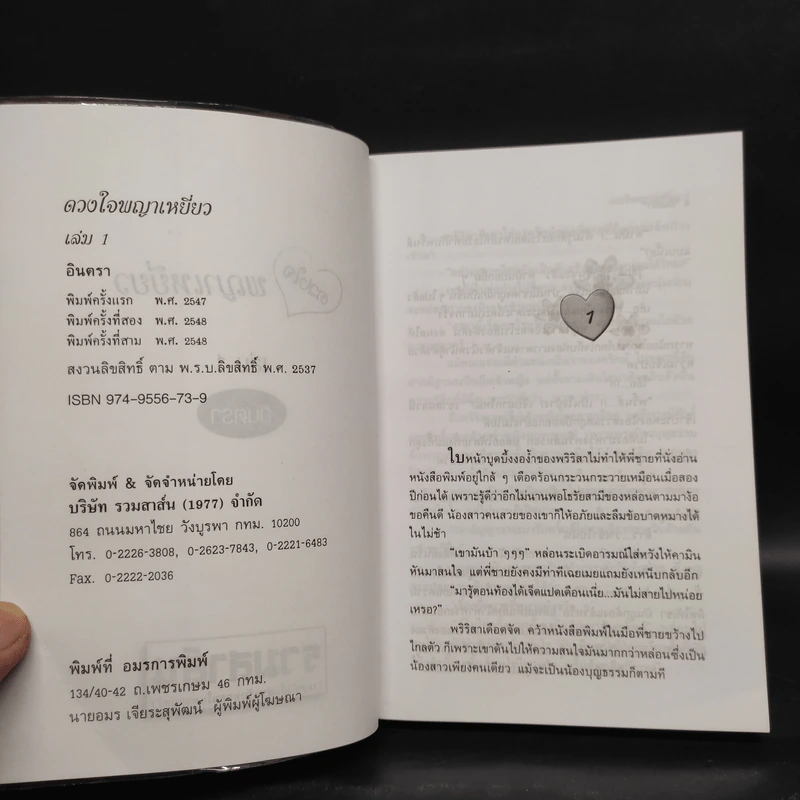 ดวงใจพญาเหยี่ยว
เล่ม 1
อินตรา
พิมพ์ครั้งแรก พ.ศ. 2547
พิมพ์ครั้งที่สอง พ.ศ. 2548
พิมพ์ครั้งที่สาม พ.ศ. 2548
สงวนลิขสิทธิ์ ตาม พ.ร.บ.ลิขสิทธิ์ พ.ศ. 2537
ISBN 974-9556-73-9
จัดพิมพ์ & จัดจำหน่ายโดย
บริษัท รวมสาส์น (1977) จำกัด
864 ถนนมหาไชย วังบูรพา กทม. 10200
โทร. 0-2226-3808, 0-2623-7843, 0-2221-6483
Fax. 0-2222-2036
พิมพ์ที่ อมรการพิมพ์
134/40-42 ถ.เพชรเกษม 46 กทม.
นายอมร เจียระสุพัฒน์ ผู้พิมพ์ผู้โฆษณา
1
ใบหน้าบูดบึ้งงอง้ำของพริริสาไม่ทำให้พี่ชายที่นั่งอ่าน
หนังสือพิมพ์อยู่ใกล้ ๆ เดือดร้อนกระวนกระวายเหมือนเมื่อสอง
ปีก่อนได้ เพราะรู้ดีว่าอีกไม่นานพอโธรัยสามีของหล่อนตามมาง้อ
ขอคืนดี น้องสาวคนสวยของเขาก็ให้อภัยและลืมข้อบาดหมางได้
ในไม่ช้า
"เขามันบ้า ๆๆๆ" หล่อนระเบิดอารมณ์ใส่หวังให้คามิน
หันมาสนใจ แต่พี่ชายยังคงมีท่าทีเฉยเมยแถมยังเหน็บกลับอีก
"มารู้ตอนท้องได้เจ็ดแปดเดือนเนี่ย...มันไม่สายไปหน่อย
เหรอ?"
พริริสาเดือดจัด คว้าหนังสือพิมพ์ในมือพี่ชายขว้างไป
ไกลตัว ก็เพราะเขาดันไปให้ความสนใจมันมากกว่าหล่อนซึ่งเป็น
น้องสาวเพียงคนเดียว แม้จะเป็นน้องบุญธรรมก็ตามที